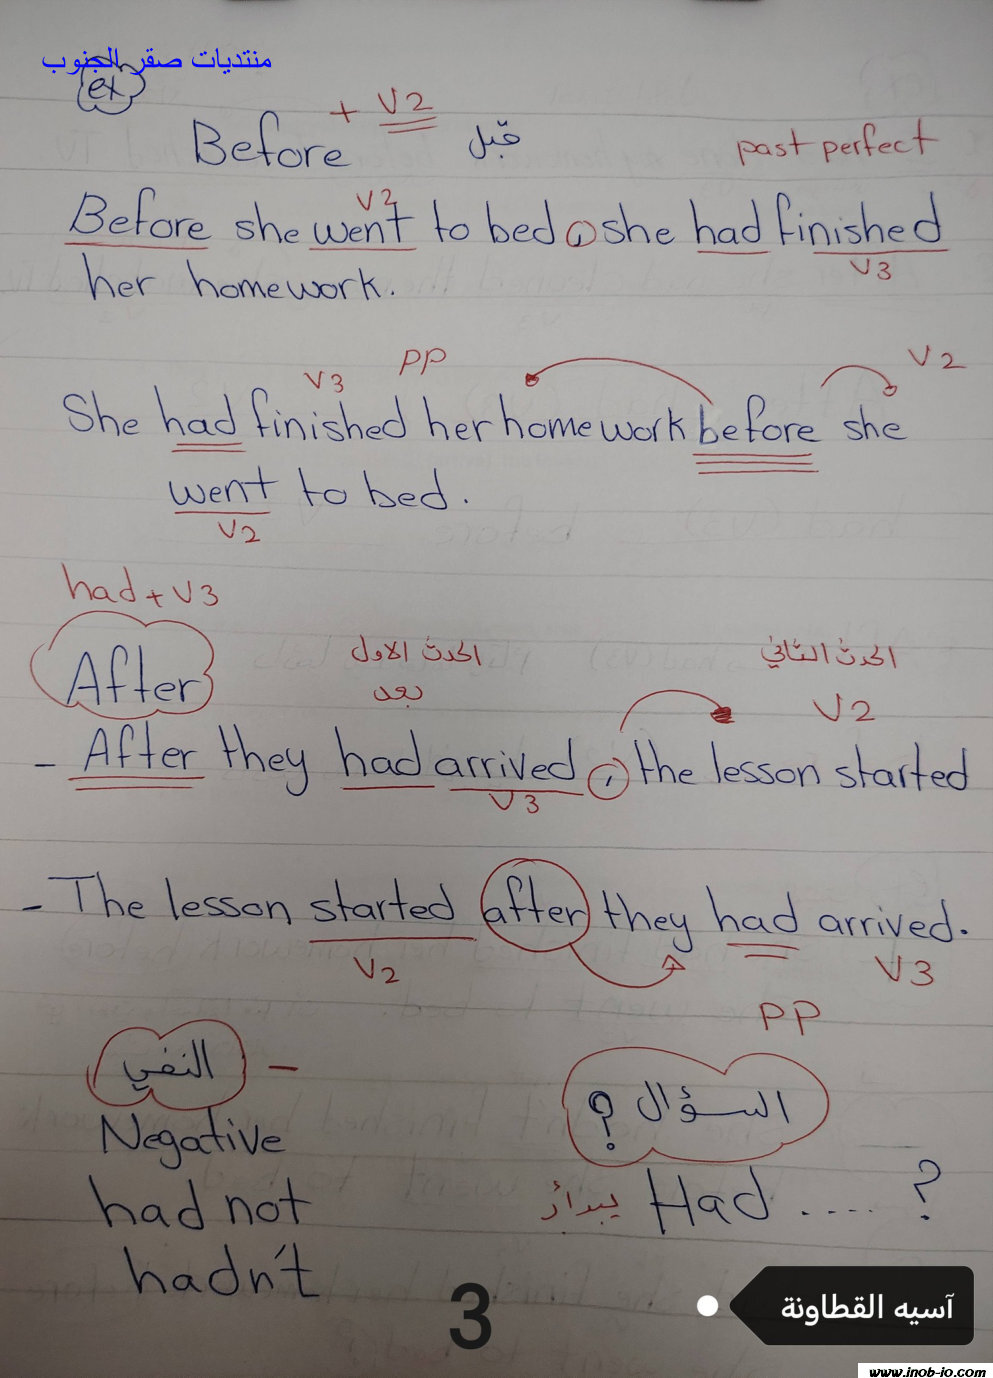 منتديات صقر الجنوب
ex
+ V2
Before قبل past perfect
V2
Before she went to bed, she had finished
V3
her homework.
V3 PP V2
She had finished her homework before she
went to bed.
V2
had + V3
After الحدث الاول الحدث الثاني
بعد V2
- After they had arrived, the lesson started
V3
- The lesson started after they had arrived.
V2 V3
PP
النفي - السؤال ?
Negative
had not يبدأ Had ..... ?
hadn't
3
آسيه القطاونة
www.jnob-jo.com